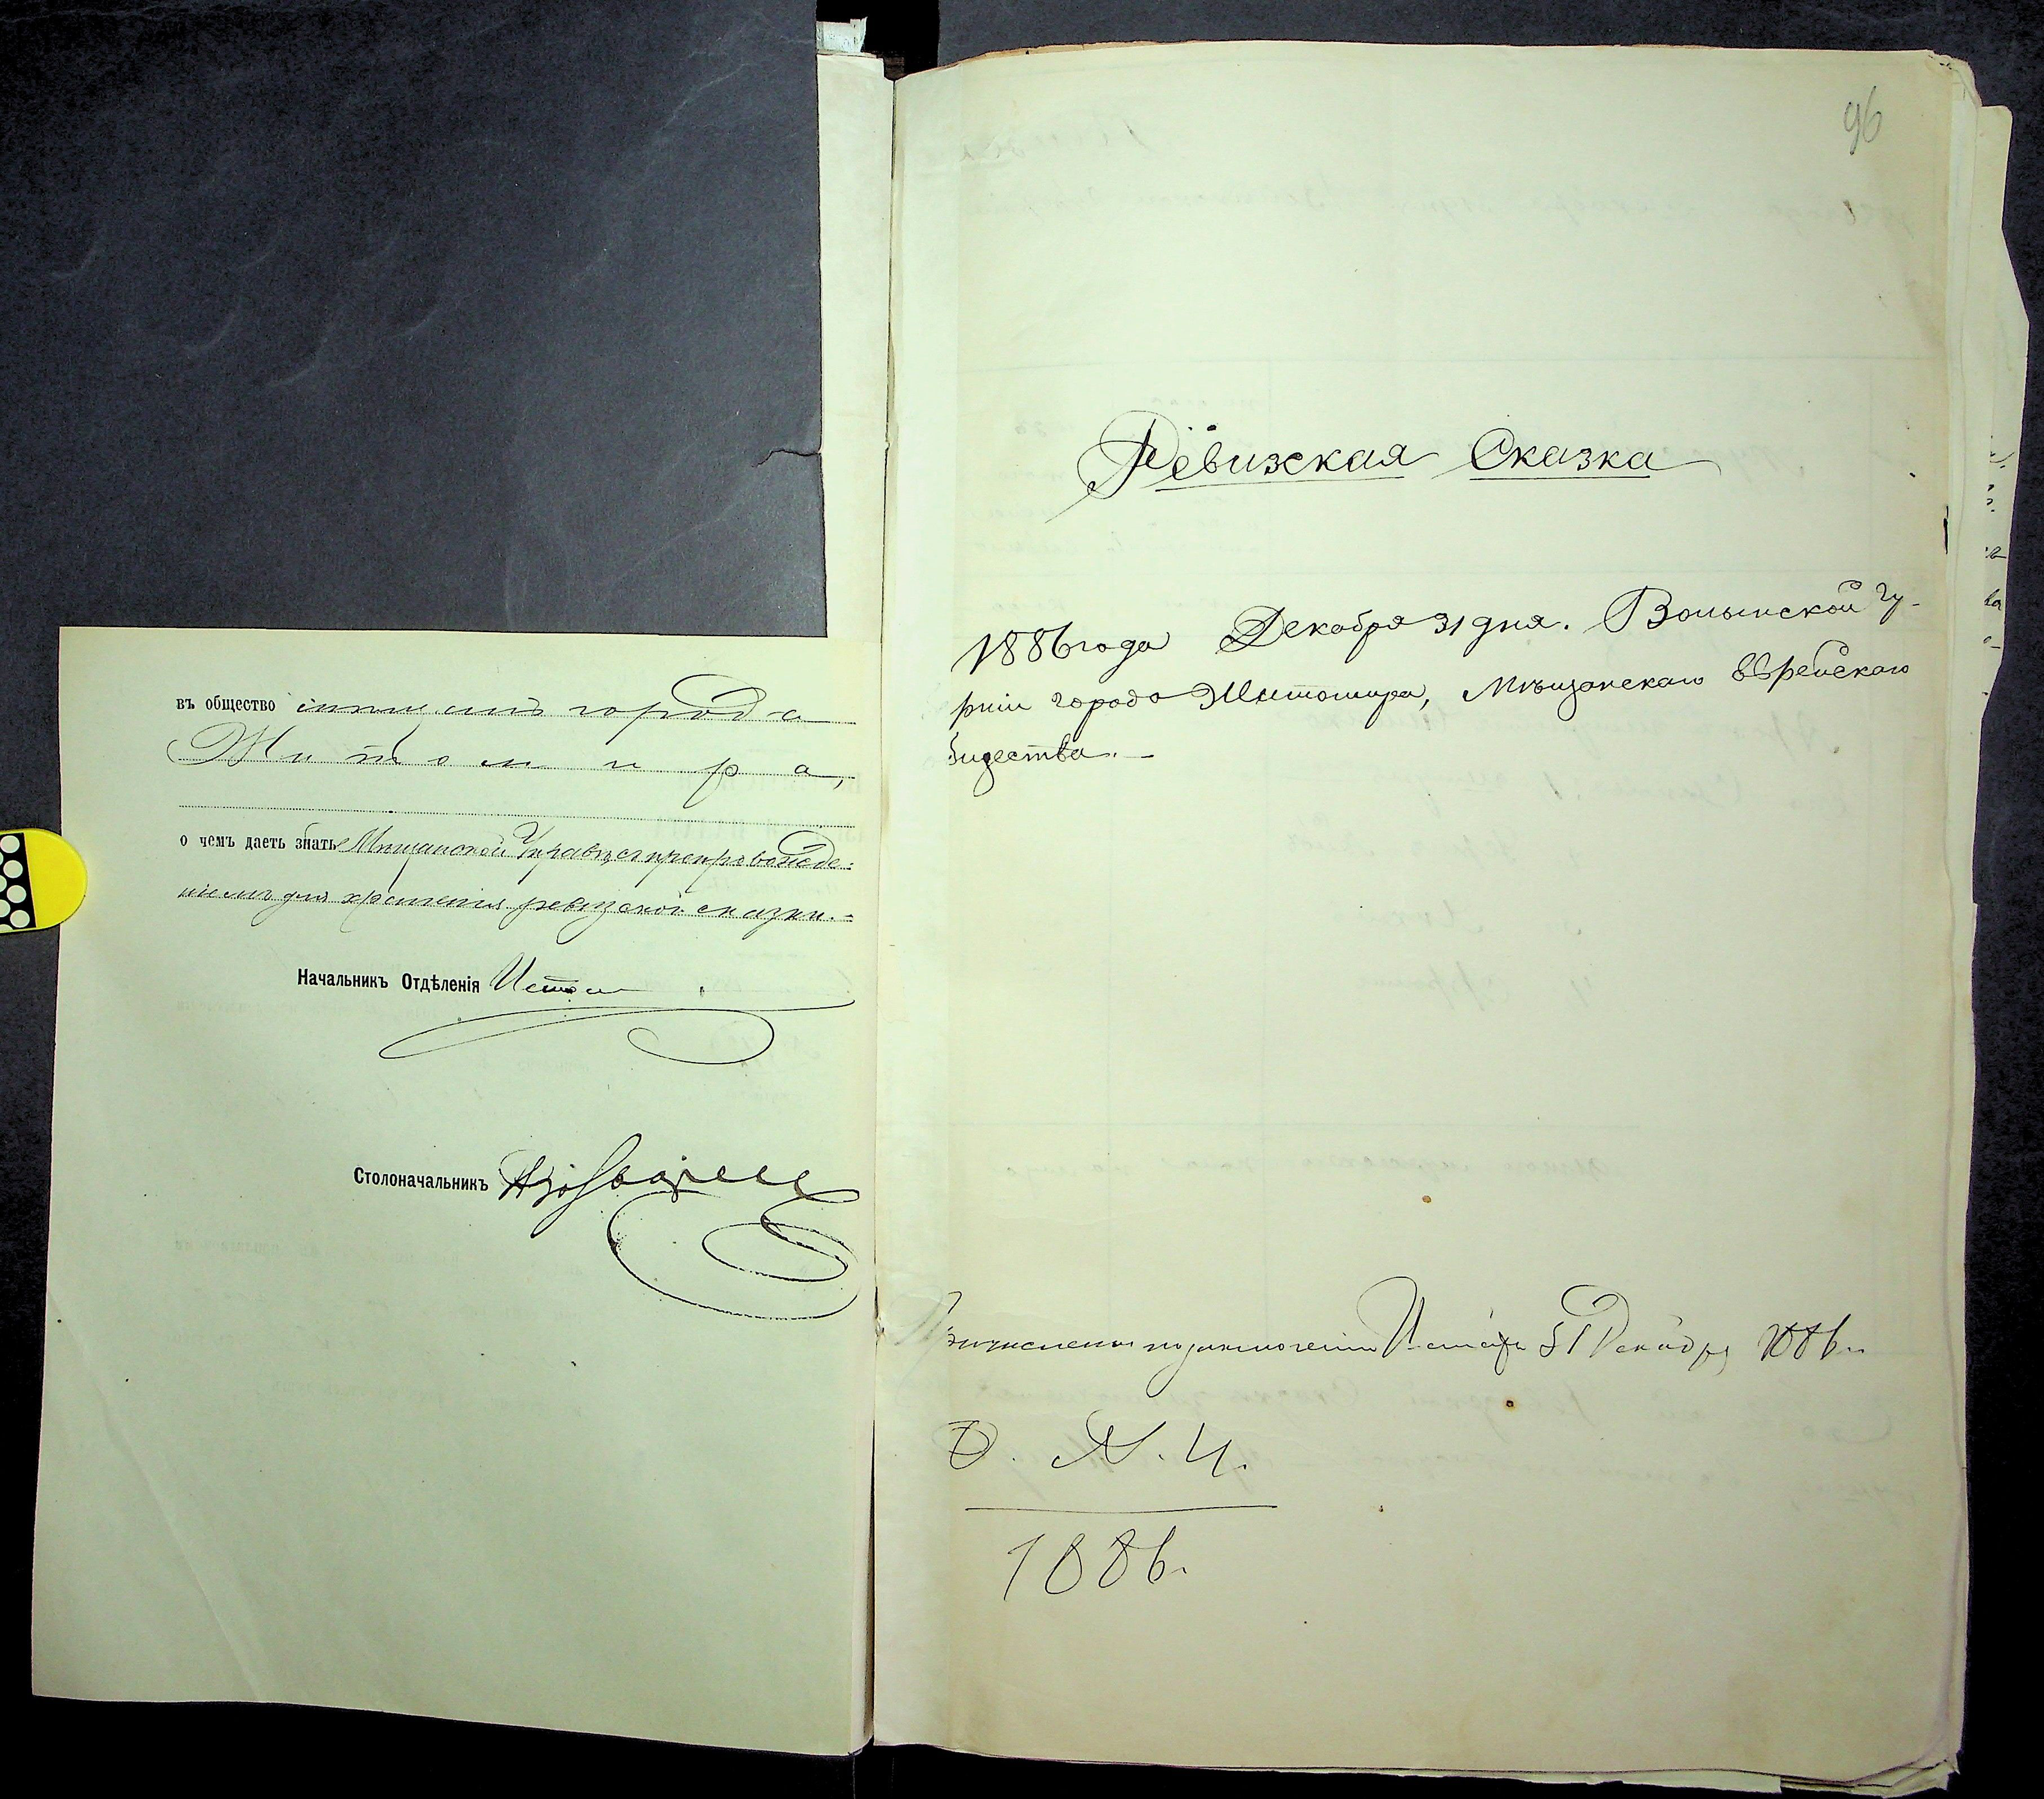 въ общество мѣщанъ города
Житомира,
о чемъ даетъ знать Мѣщанской Управѣ съ препровожде-
ніемъ для храненія ревизской сказки.-
Начальникъ Отдѣленія
Столоначальникъ
96
Ревизская Сказка
1886 года Декабря 31 дня. Волынской Гу-
рніи города Житомира, Мѣщанскаго Еврейскаго
бщества.-
Причислены по 31 Декабря 1886 г.
О. N. 4.
1886.